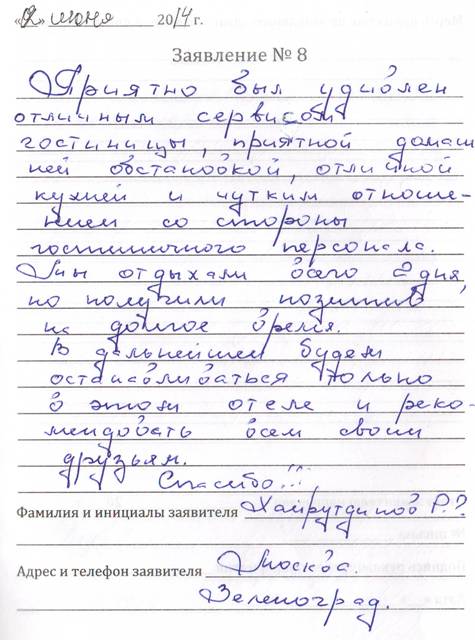 «02» июня 2014 г.
Заявление № 8
Приятно был удивлен
отличным сервисом
гостиницы, приятной домаш
ней обстановкой, отличной
кухней и чутким отноше-
нием со стороны
гостиничного персонала.
Мы отдыхали всего 2 дня,
но получили позитив
на долгое время.
В дальнейшем будем
останавливаться только
в этом отеле и реко-
мендовать всем своим
друзьям.
Спасибо!!!
Фамилия и инициалы заявителя Хайрутдинов Р.?
Адрес и телефон заявителя Москва.
Зеленоград.